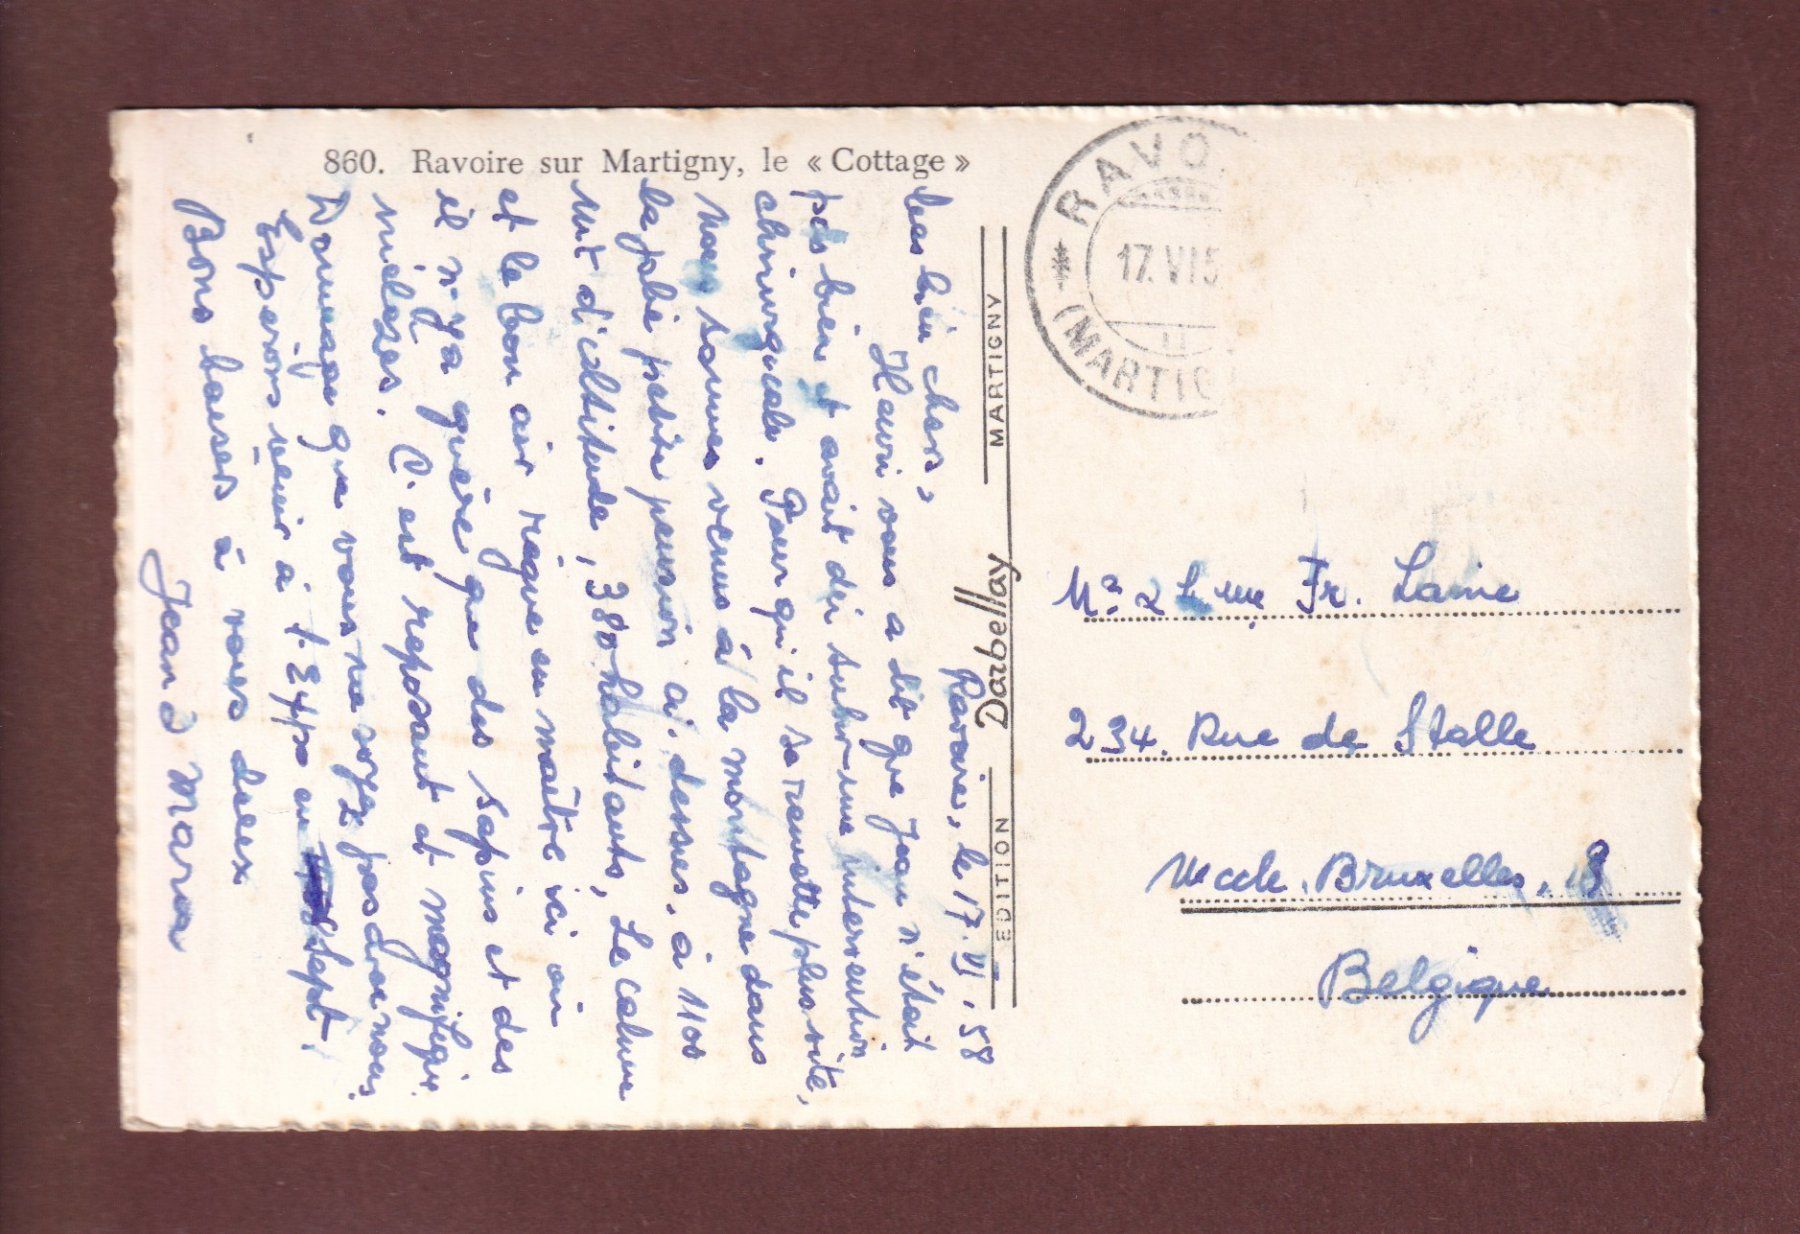 860. Ravoire sur Martigny, le « Cottage »
Ravoire, le 17.VI.58
bien chers,
Henri vous a dit que Jean n'était
pas bien et avait dû subir une intervention
chirurgicale. Pour qu'il se remette plus vite,
nous sommes venus à la montagne dans
la jolie petite pension ci-dessus. à 1100
mt d'altitude, 380 habitants, Le calme
et le bon air règne en maître ici où
il n'y a guère que des sapins et des
mélèzes. C'est reposant et magnifique.
Dommage que vous ne soyez pas avec nous.
Espérons venir à l'Expo en Sept.
Bons baisers à vous deux
Jean & Mara
EDITION Darbellay MARTIGNY
RAVO
17.VI 5
(MARTIG
Fr. Laine
234. Rue de Stalle
Uccle. Bruxelles.
Belgique